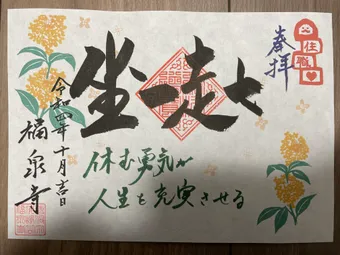 奉拝
住職
坐一走七
休む勇気が
人生を充実させる
令和四年十月吉日
福泉寺